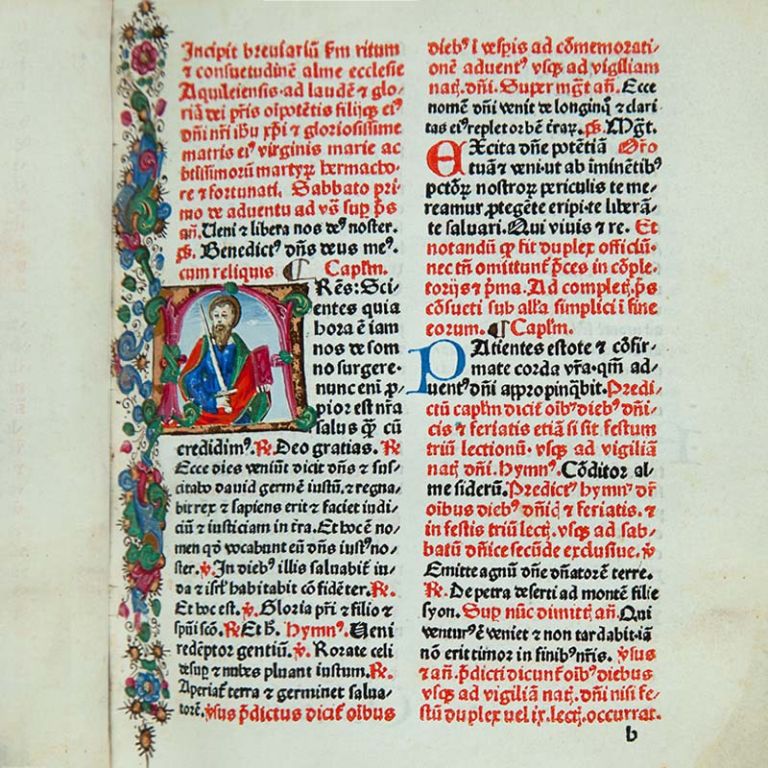 Incipit breuiariū ẜm ritum
⁊ consuetudinē alme ecclesie
Aquileiensis·ad laudē ⁊ glo⸗
riā dei pr̄is oīpotētis filijqꝫ eiꝰ
dn̄i nr̄i ihu xp̄i ⁊ gloriosissime
matris eiꝰ virginis marie ac
btīssimorū martyrꝝ hermacho⸗
re ⁊ fortunati. Sabbato pri⸗
mo de aduentu ad vs̄ sup ps̄
an̄. Ueni ⁊ libera nos deꝰ noster.
ps̄. Benedictꝰ dn̄s deus meꝰ.
cum reliquis ¶ Caplm̄.
FRēs: Sci⸗
entes quia
hora ē iam
nos de som
no surgere·
nunc eni ꝓ⸗
pior est nr̄a
salus qꝫ cū
credidimꝰ. ℟. Deo gratias. ℟.
Ecce dies veniūt dicit dn̄s ⁊ sus⸗
citabo dauid germē iustū. ⁊ regna⸗
bit rex ⁊ sapiens erit ⁊ faciet iudi⸗
ciū ⁊ iusticiam in tr̄a. Et hoc ē no⸗
men qd̄ vocabunt eū dn̄s iustꝰ no⸗
ster. ℣. In diebꝰ illis saluabit̄ iu⸗
da ⁊ isrł habitabit cōfidēter. ℟.
Et hoc est. ℣. Gloria pr̄i ⁊ filio ⁊
spūi scō. ℟. Et h̄. Hymnꝰ. Ueni
redēptor gentiū. ℣. Rorate celi
desup ⁊ nubes pluant iustum. ℟.
Aperiat̄ terra ⁊ germinet salua⸗
torē. ℣sus p̄dictus dicit̄ oībus
diebꝰ ī vesp̄is ad cōmemorati⸗
onē aduentꝰ vsqꝫ ad vigilliam
natj. dn̄i. Super mḡt an̄. Ecce
nomē dn̄i venit de longinqͦ ⁊ clari
tas eiꝰ replet orbē t̄raꝝ. ps̄. Mḡt.
EXcita dn̄e potētiā Orō
tuā ⁊ veni·ut ab iminētibꝰ
pctōꝝ nostroꝝ periculis te me⸗
reamur ꝓtegēte eripi·te liberā⸗
te saluari. Qui viuis ⁊ re. Et
notandū ꝙ fit duplex officiū·
nec tn̄ omittunt̄ p̄ces in cōple⸗
torijs ⁊ p̄ma. Ad completj. ps̄
cōsueti sub all̄a simplici ī fine
eorum. ¶ Caplm̄.
PAtientes estote ⁊ cōfir⸗
mate corda vr̄a·qm̄ ad⸗
uentꝰ dn̄i appropinqͥbit. Predi⸗
ctū caplm̄ dicit̄ oībꝰ diebꝰ dn̄i⸗
cis ⁊ feriatis etiā si sit festum
triū lectionū· vsqꝫ ad vigiliā
natj dn̄i. Hymnꝰ. Cōditor al⸗
me siderū. Predictꝰ hymnꝰ dr̄
oībus diebꝰ dn̄icj ⁊ feriatis. ⁊
in festis triū lectj. vsqꝫ ad sab⸗
batū dn̄ice secūde exclusiue. ℣
Emitte agnū dn̄e dn̄atorē terre.
℟. De petra deserti ad montē filie
syon. Sup nūc dimittj an̄. Qui
venturꝰ ē veniet ⁊ non tardabit·iā
nō erit timor in finibꝰ nr̄is. ℣sus
⁊ an̄. p̄dicti dicunt̄ oībꝰ diebus
vsqꝫ ad vigiliā natj. dn̄i nisi fe⸗
stū duplex uel ix. lectj. occurrat.
b